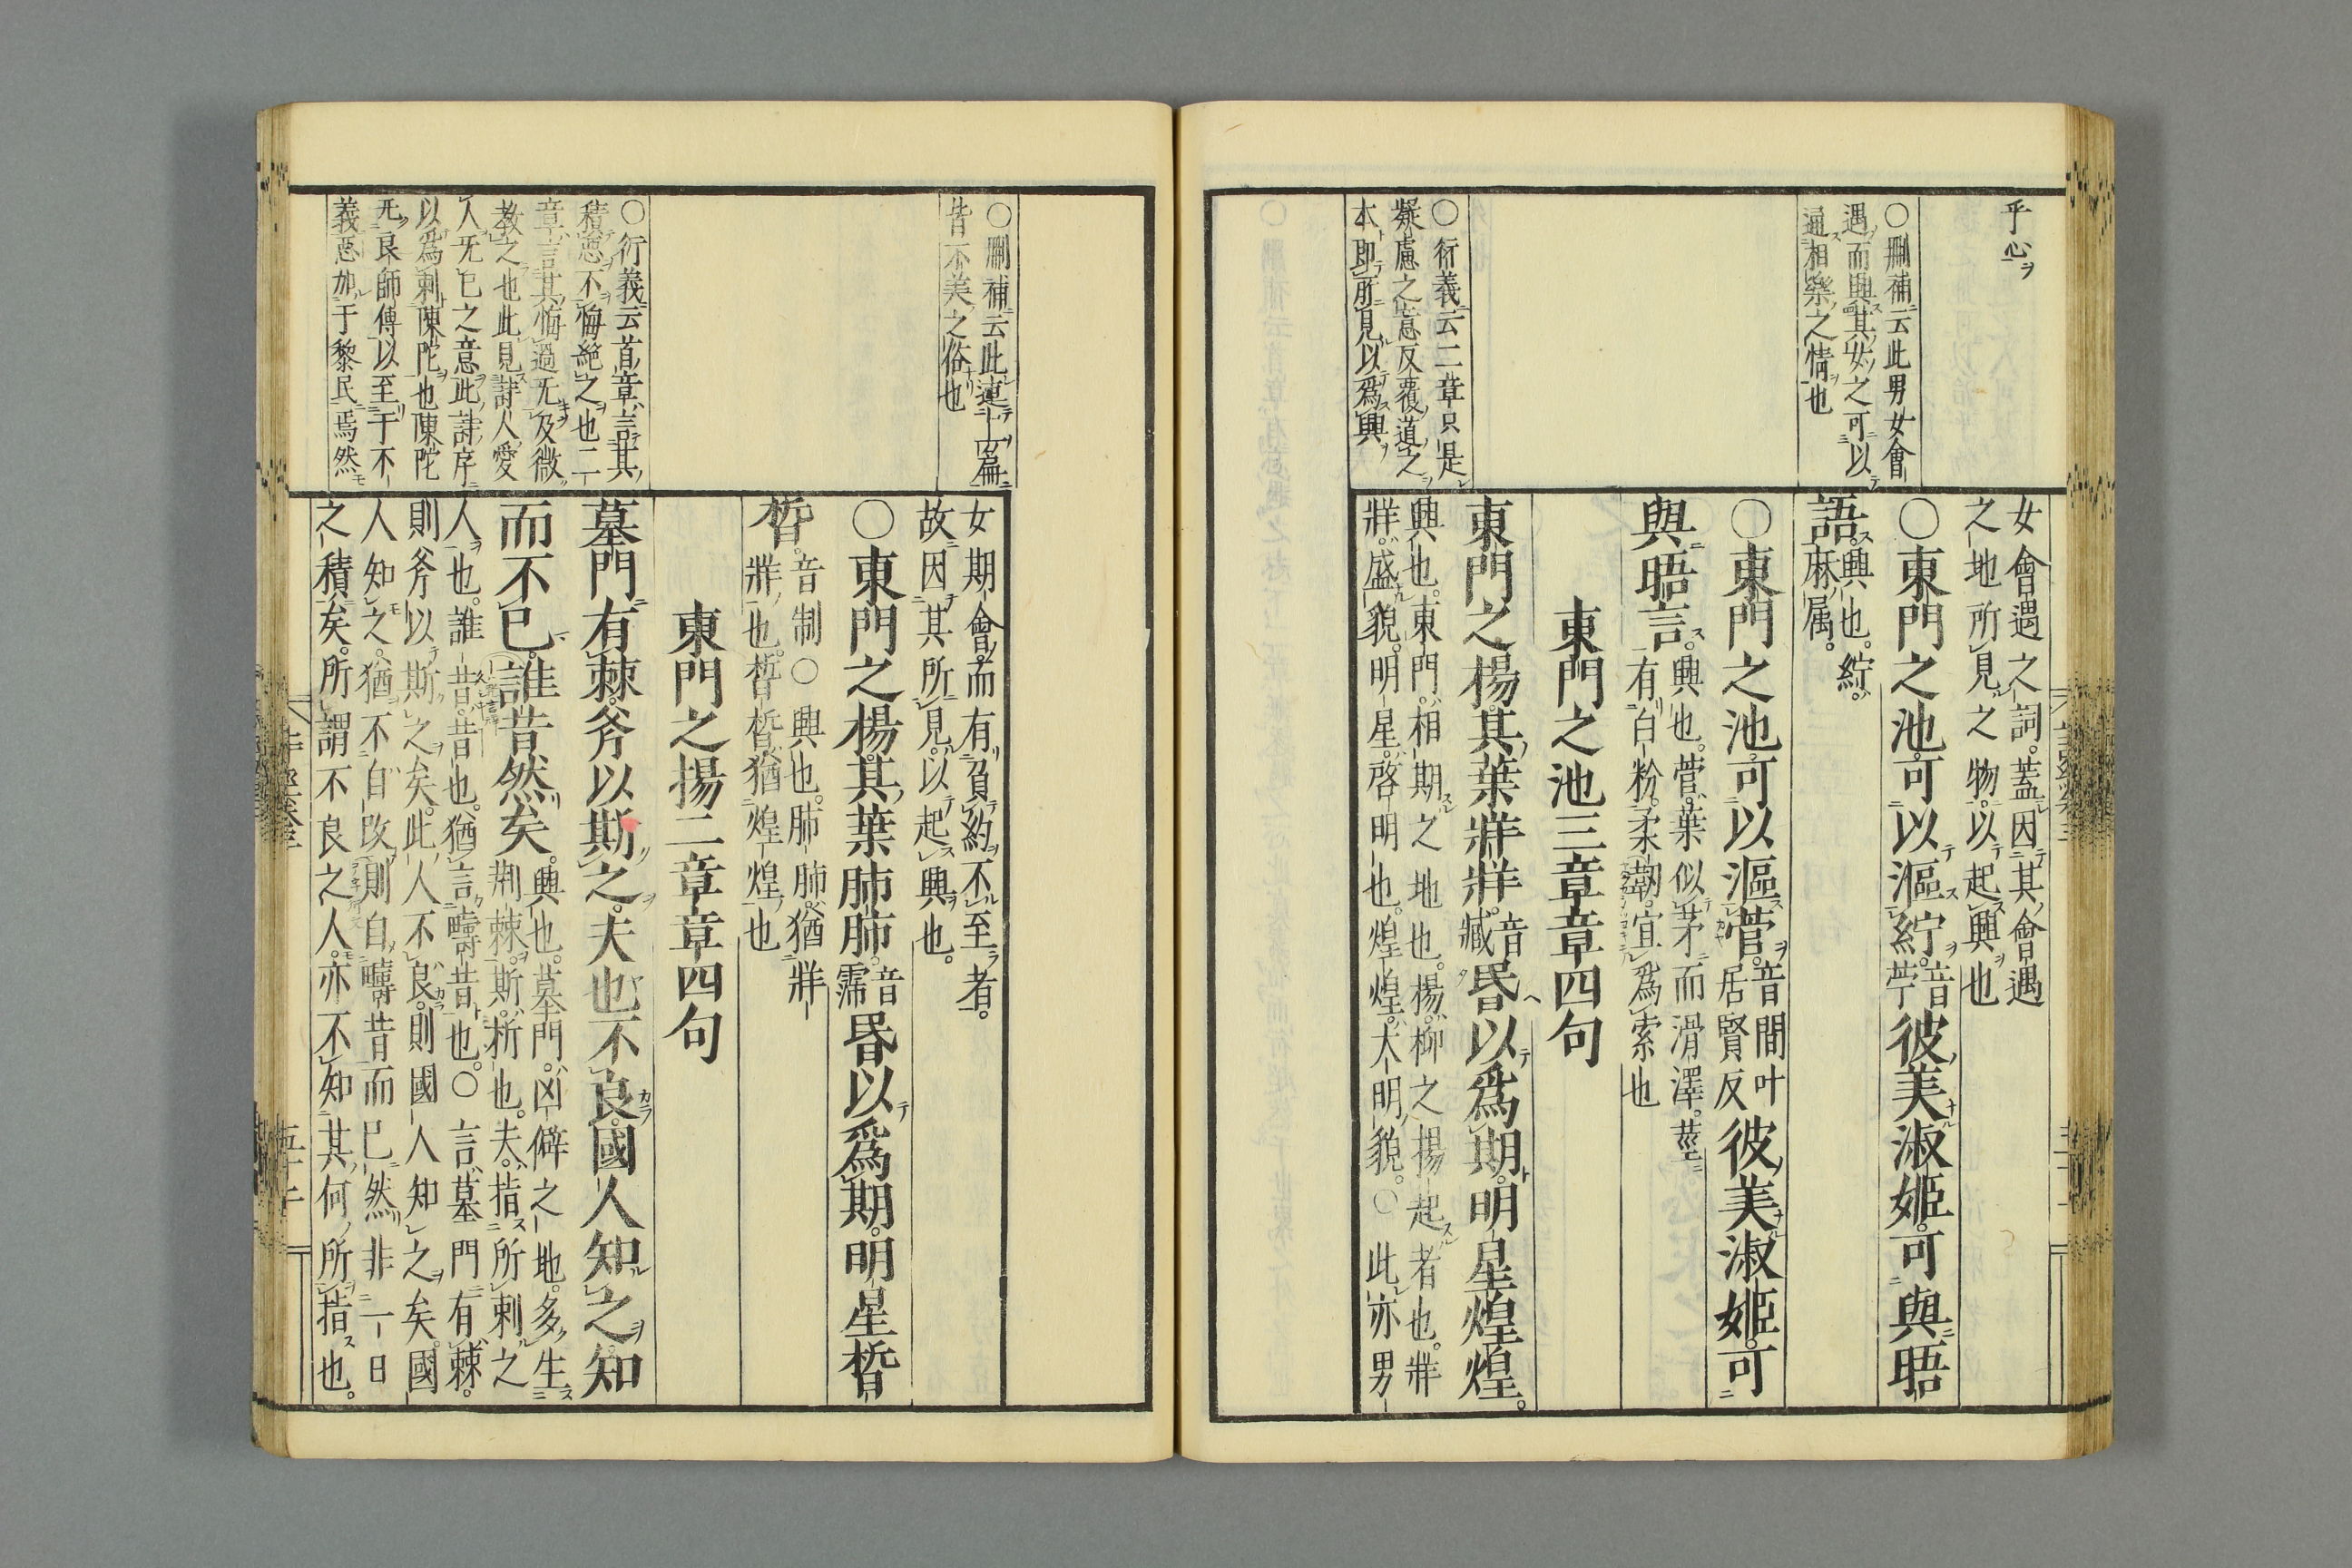 乎心
○刪補云此男女會
遇而興其女之可以
通相樂之情也
○衍義云二章只是
凝慮之意反覆道之
本即所見以為興
女會遇之詞。蓋因其會遇
之地所見之物。以起興也
○東門之池。可以漚紵。音苧彼美淑姬。可與晤
語。興也。紵。麻属。
○東門之池。可以漚菅。音間叶居賢反彼美淑姬。可
與晤言。興也。菅。葉似茅而滑澤。莖有白粉。柔韌。宜為索也
東門之池三章章四句
東門之楊。其葉牂牂。音臧昏以為期。明星煌煌。
興也。東門。相期之地也。楊。柳之揚起者也。牂
牂。盛貌。明星。啓明也。煌煌。大明貌。○此亦男
女期會。而有負約不至者。
故因其所見。以起興也。
○東門之楊。其葉肺肺。音霈昏以為期。明星晢
晢。音制○興也。肺肺。猶牂牂也。晢晢。猶煌煌也
東門之揚二章章四句
墓門有棘。斧以斯之。夫也不良。國人知之。知
而不已。誰昔然矣。興也。墓門。凶僻之地。多生荆棘。斯。析也。夫。指所刺之
人也。誰昔。昔也。猶言疇昔也。○言墓門有棘。
則斧以斯之矣。此人不良。則國人知之矣。國
人知之。猶不自改。則自疇昔而已然。非一日
之積矣。所謂不良之人。亦不知其何所指也。
○刪補云此連上篇
皆不美之俗也
○衍義云首章言其
積惡不悔絕之也二
章言其悔過无及微
教之也此見詩人愛
人无已之意此詩序
以為刺陳陀也陳陀
无良師傅以至于不
義惡加于黎民焉然